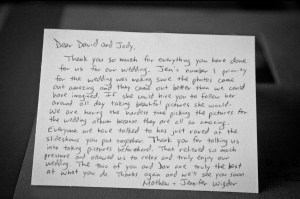 Dear David and Jody,
Thank you so much for everything you have done
for us for our wedding. Jen's number 1 priority
for the wedding was making sure the photos came
out amazing and they came out better than we could
have imagined. If she could hire you to follow her
around all day taking beautiful pictures she would.
We are having the hardest time picking the pictures for
the wedding album because they are all so amazing.
Everyone we have talked to has just raved at the
slideshow you put together. Thank you for talking us
into taking pictures beforehand. That relieved so much
pressure and allowed us to relax and truly enjoy our
wedding. The two of you and are truly the best
at what you do. Thanks again and we'll see you soon.
Mathew + Jennifer